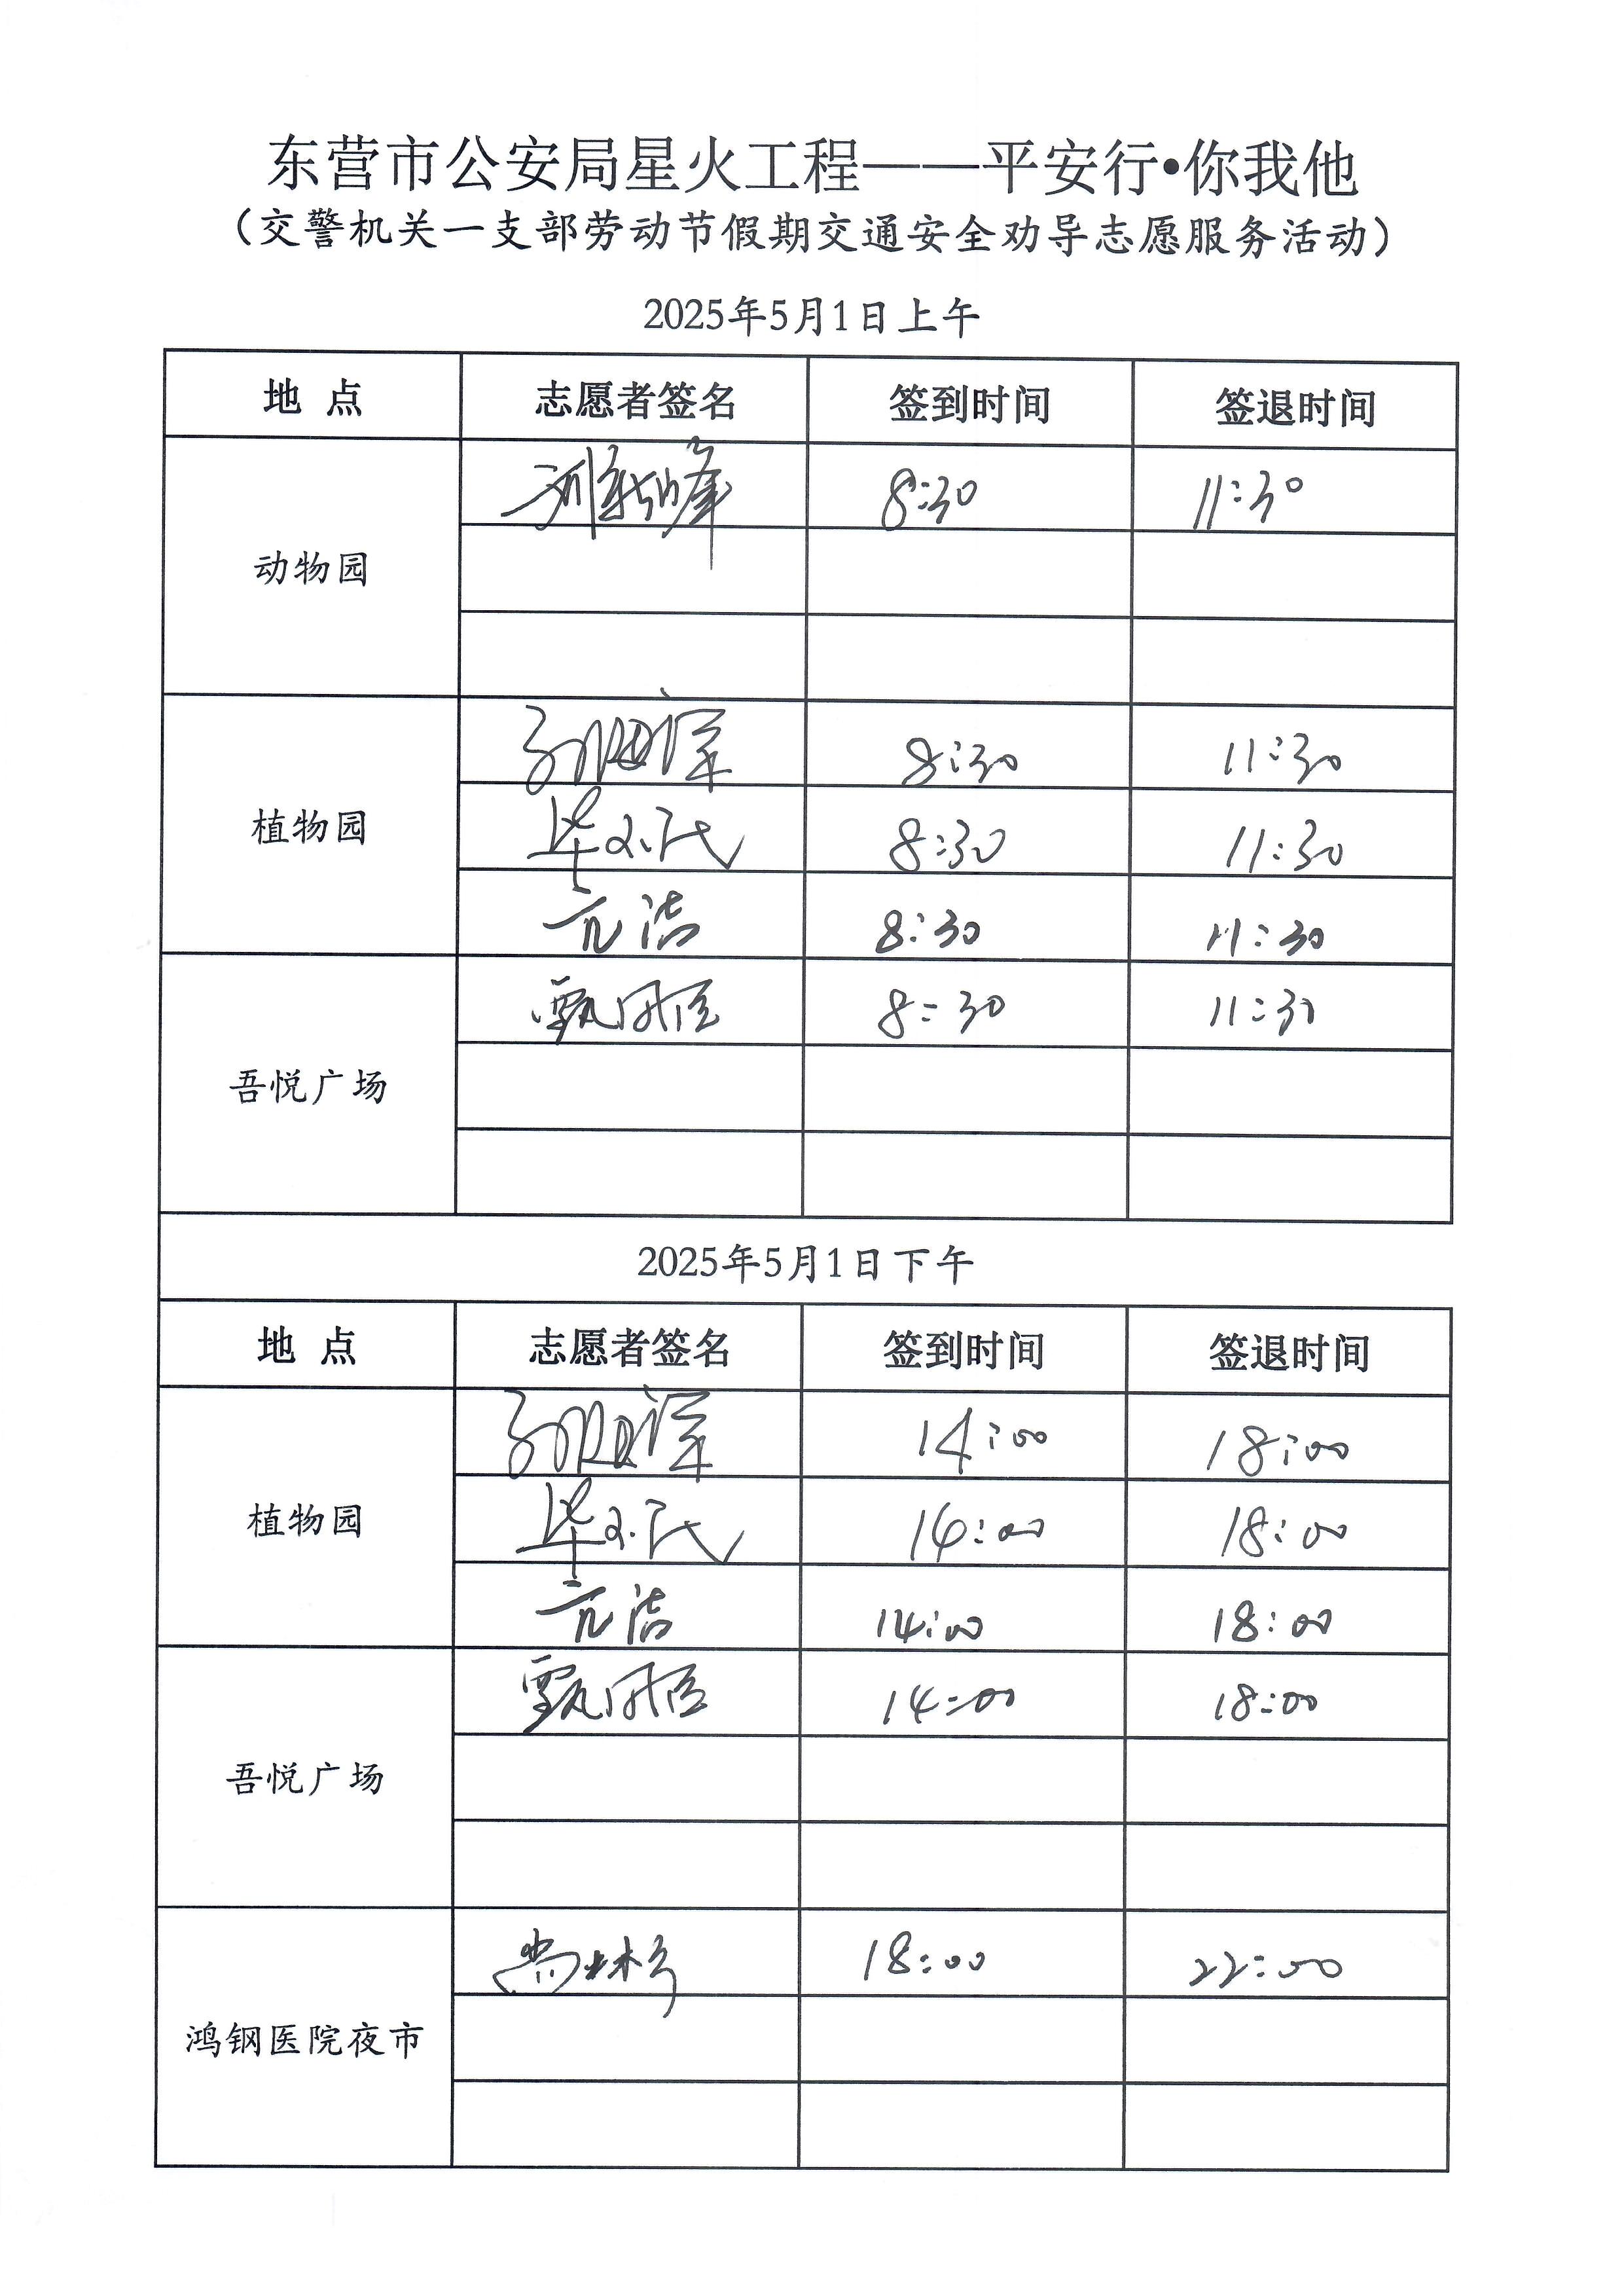 东营市公安局星火工程——平安行•你我他
（交警机关一支部劳动节假期交通安全劝导志愿服务活动）
2025年5月1日上午
地 点 志愿者签名 签到时间 签退时间
动物园 8:30 11:30
植物园
8:30 11:30
毕 8:30 11:30
亓洁 8:30 11:30
吾悦广场 甄 8:30 11:30
2025年5月1日下午
地 点 志愿者签名 签到时间 签退时间
植物园
14:00 18:00
毕 14:00 18:00
亓洁 14:00 18:00
吾悦广场 甄 14:00 18:00
鸿钢医院夜市 尚 18:00 22:00